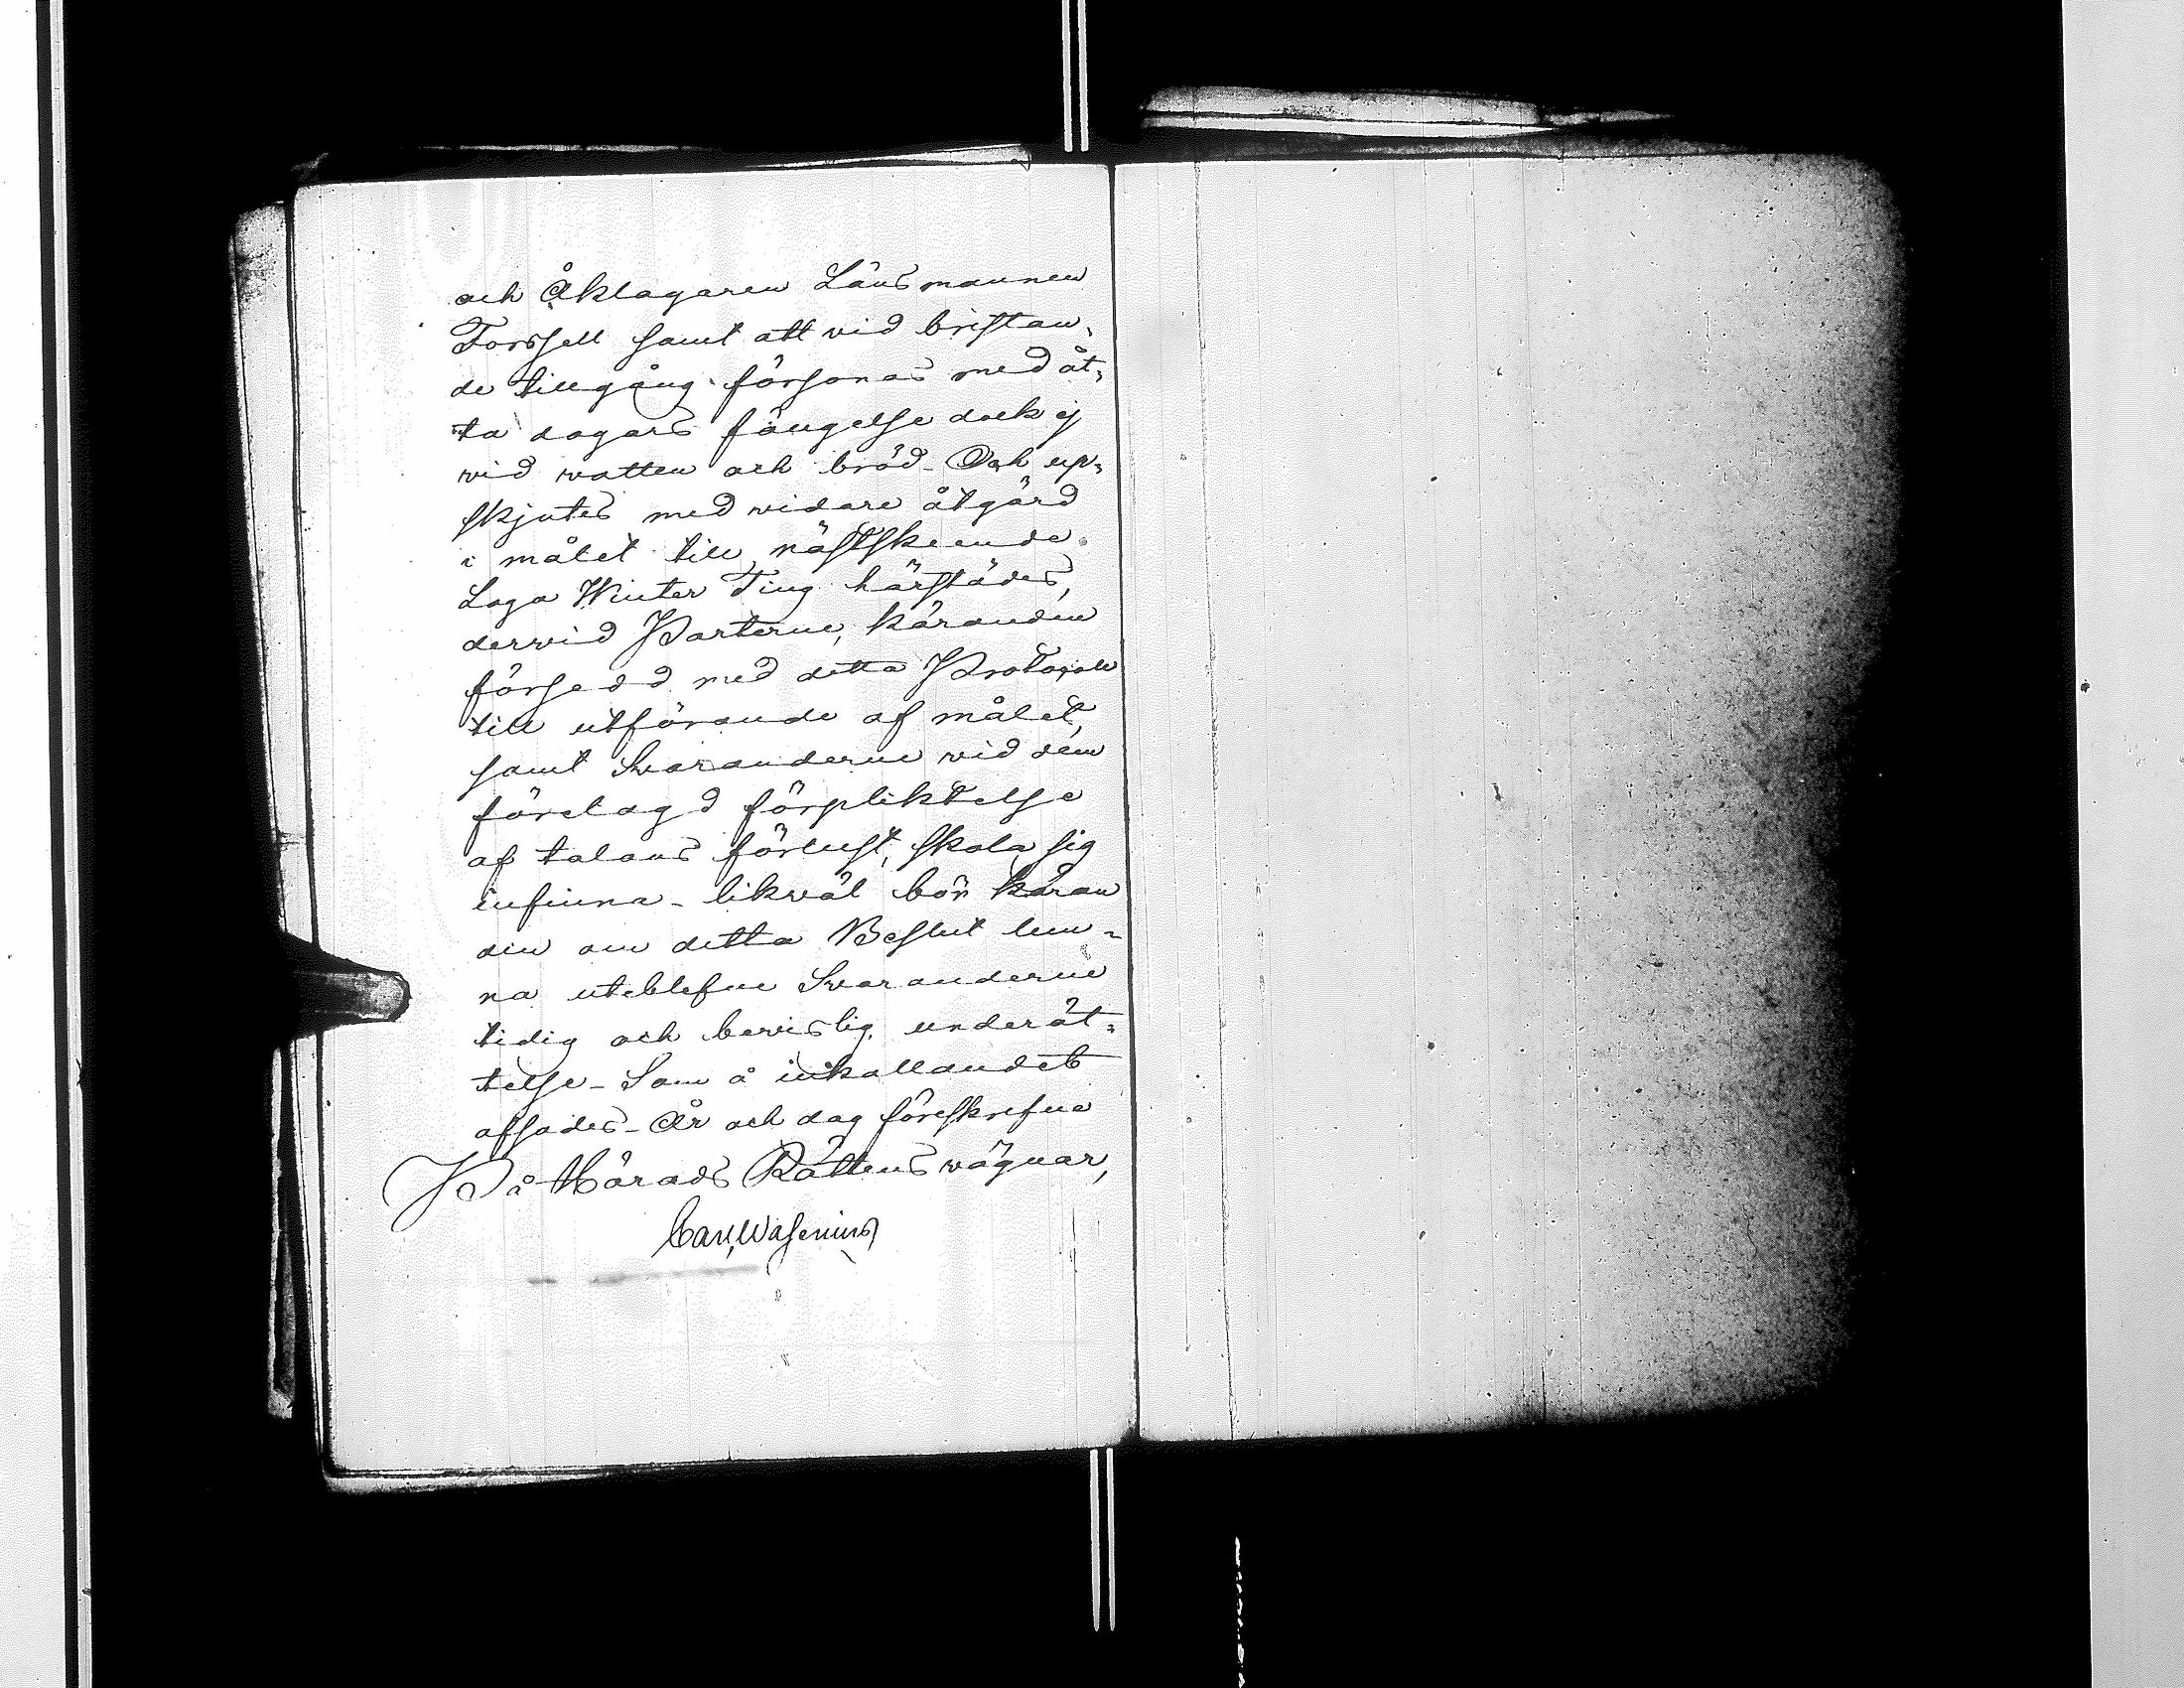 och Åklagaren Länsmannen
Forssell samt att vid bristan¬
de tillgång försonas med åt¬
ta dagars fängelse dock ej
vid watten och bröd. Och up¬
skjutes med vidare åtgärd
i målet till nästskeende
Laga Winter Ting härstädes,
dervid Parterne, käranden
försedd med detta Protocoll
till utförande af målet,
samt Svaranderne vid dem
förelagd förpliktelse
af talans förlust, skola sig
infinna - likväl bör käran
den om detta Beslut lem¬
na uteblefne Svaranderne
tidig och bevislig underät¬
telse - Som å inkallandet
afsades - År och dag föreskrefne
På Härads Rättens vägnar,
Carl Wasenius